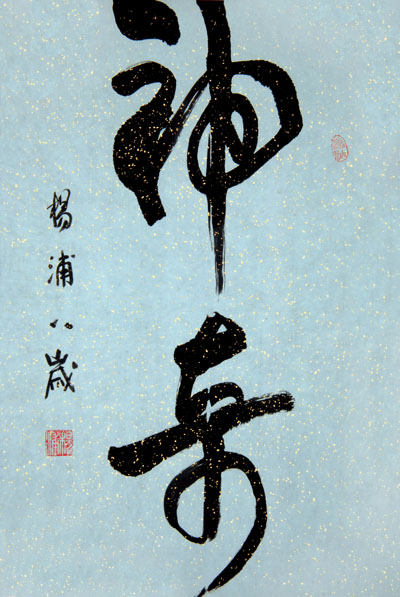 神奇
楊浦八歲